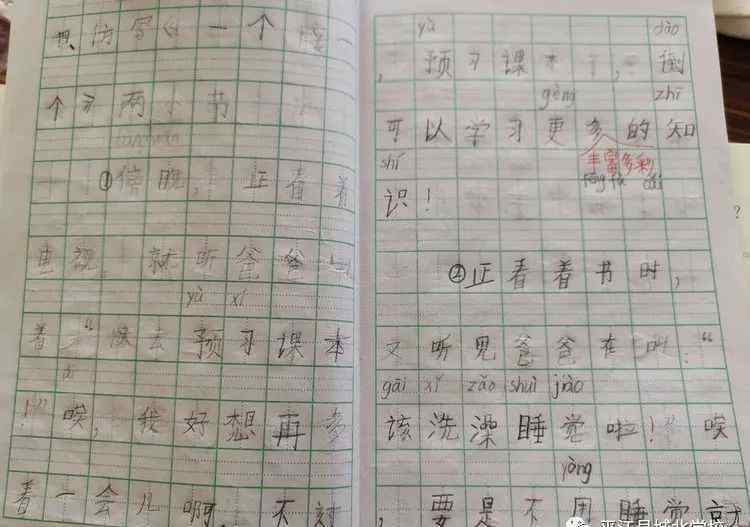 仿写《一个接一
个》两小节
bàng wǎn
①傍晚，正看着
电视，就听爸爸
yù xí
着"快去预习课本
āi
！"唉，我好想再多
看一会儿啊。不过
yù dào
，预习课本，倒
gèng zhī
可以学习更多的知
丰富多彩
shí fēng fù cǎi
识！
②正看着书时，
又听见爸爸在叫："
gāi xǐ zǎo shuì jiào
该洗澡睡觉啦！"唉
yòng
，要是不用睡觉就
平江县城北学校